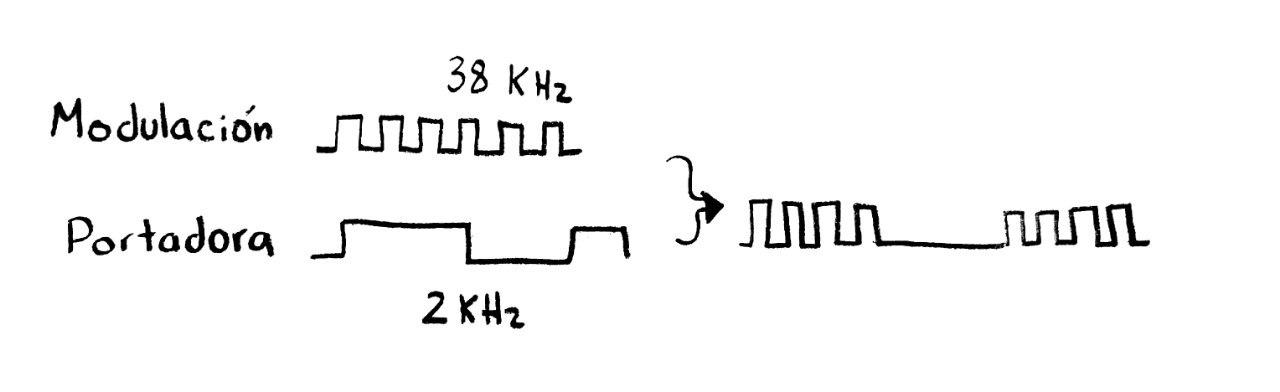 38 KHz
Modulación
Portadora
2 KHz